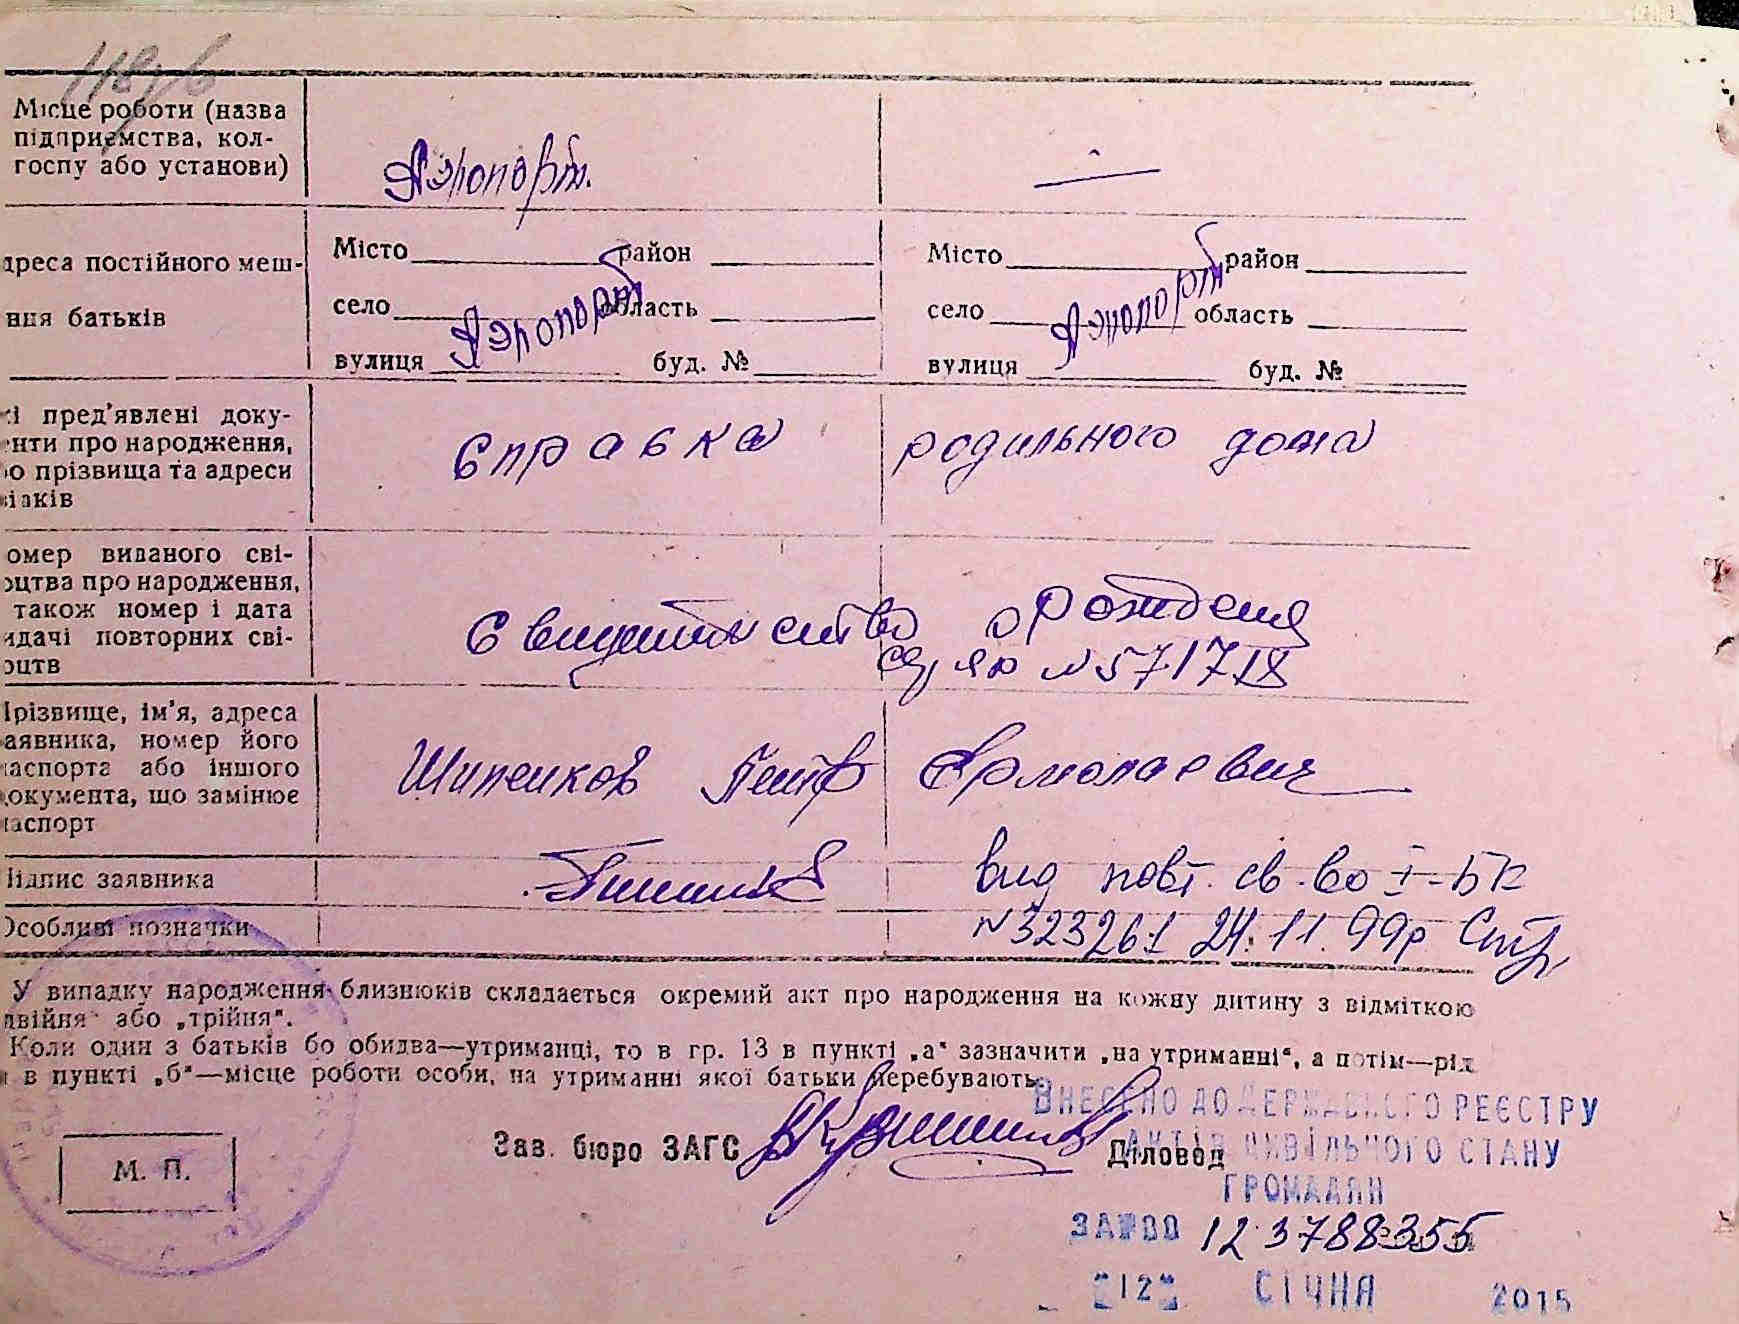 118/6
Місце роботи (назва підприємства, колгоспу або установи)
Аэропорт. —
дреса постійного меш-
ння батьків
Місто район
село область
Аэропорт
вулиця буд. №
Місто район
село область
Аэропорт
вулиця буд. №
і пред'явлені доку-
нти про народження,
о прізвища та адреси
ідків
Справка родильного дома
омер виданого сві-
оцтва про народження,
також номер і дата
идачі повторних сві-
оцтв
Свидетельство о рождения
N 571718
різвище, ім'я, адреса
аявника, номер його
паспорта або іншого
документа, що замінює
паспорт
Шипенков Петр Ермолаевич
Підпис заявника
вид повт. св-во І-БК
Особливі позначки
N 323261 24.11.99р
У випадку народження близнюків складається окремий акт про народження на кожну дитину з відміткою
двійня" або „трійня".
Коли один з батьків бо обидва—утриманці, то в гр. 13 в пункті „а" зазначити „на утриманні", а потім—рід
в пункті „б"—місце роботи особи, на утриманні якої батьки перебувають.
ВНЕСЕНО ДО ДЕРЖАВНОГО РЕЄСТРУ
Зав. бюро ЗАГС Діловод
АКТІВ ЦИВІЛЬНОГО СТАНУ
М. П.
ГРОМАДЯН
ЗА №00 123788355
"12" СІЧНЯ 2015